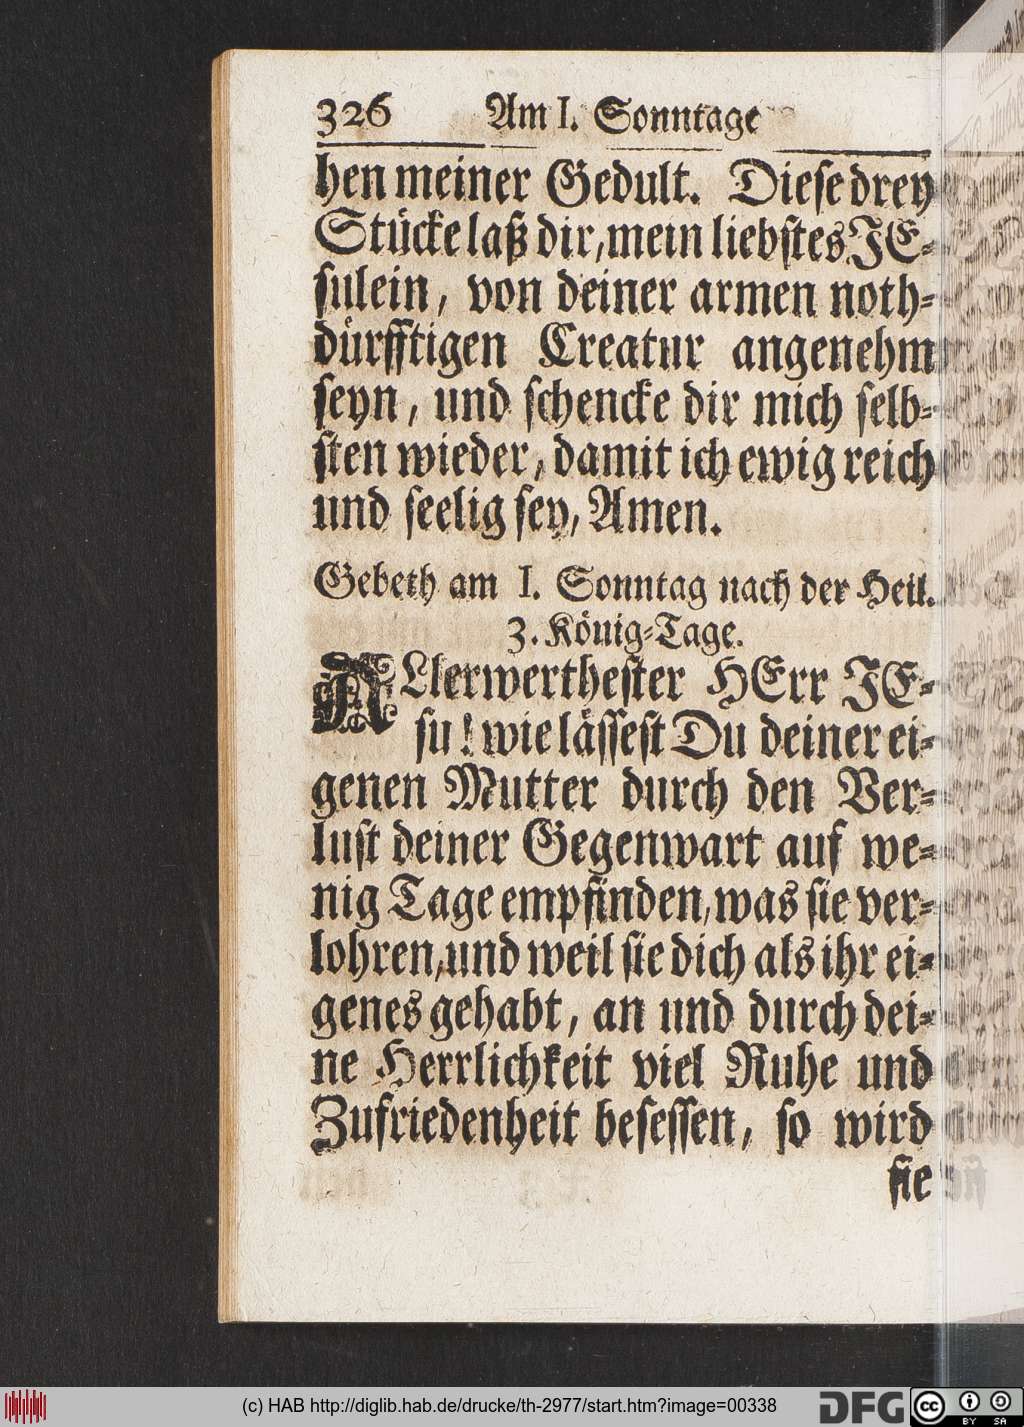 326 Am I. Sonntage
hen meiner Gedult. Diese drey
Stücke laß dir, mein liebstes JE-
sulein, von deiner armen noth-
dürfftigen Creatur angenehm
seyn, und schencke dir mich selb-
sten wieder, damit ich ewig reich
und seelig sey, Amen.
Gebeth am I. Sonntag nach der Heil.
3. König-Tage.
ALlerwerthester HErr JE-
su! wie lässest Du deiner ei-
genen Mutter durch den Ver-
lust deiner Gegenwart auf we-
nig Tage empfinden, was sie ver-
lohren, und weil sie dich als ihr ei-
genes gehabt, an und durch dei-
ne Herrlichkeit viel Ruhe und
Zufriedenheit besessen, so wird
sie
(c) HAB http://diglib.hab.de/drucke/th-2977/start.htm?image=00338
DFG
cc BY SA